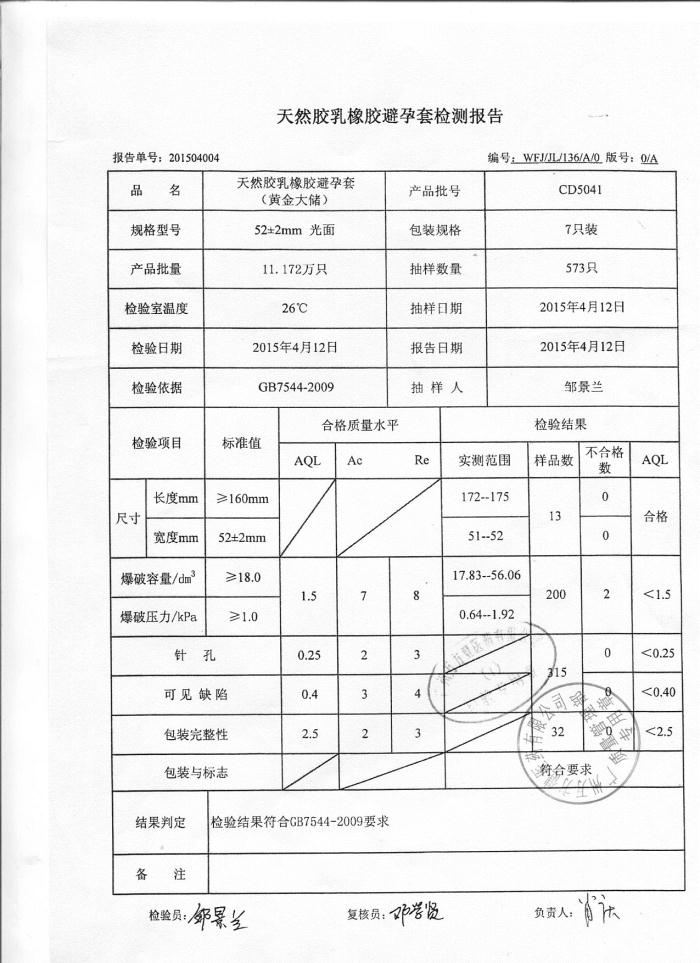 天然胶乳橡胶避孕套检测报告
报告单号：201504004 编号：WFJ/JL/136/A/0 版号：0/A
品 名 天然胶乳橡胶避孕套 产品批号 CD5041
（黄金大储）
规格型号 52±2mm 光面 包装规格 7只装
产品批量 11.172万只 抽样数量 573只
检验室温度 26℃ 抽样日期 2015年4月12日
检验日期 2015年4月12日 报告日期 2015年4月12日
检验依据 GB7544-2009 抽 样 人 邹景兰
检验项目 标准值 合格质量水平 检验结果
AQL Ac Re 实测范围 样品数 不合格数 AQL
尺寸 长度mm ≥160mm 172--175 13 0 合格
宽度mm 52±2mm 51--52 0
爆破容量/dm³ ≥18.0 1.5 7 8 17.83--56.06 200 2 <1.5
爆破压力/kPa ≥1.0 0.64--1.92
针 孔 0.25 2 3 315 0 <0.25
可见缺陷 0.4 3 4 0 <0.40
包装完整性 2.5 2 3 32 0 <2.5
包装与标志 符合要求
结果判定 检验结果符合GB7544-2009要求
备 注
检验员：邹景兰 复核员：邓学贤 负责人：